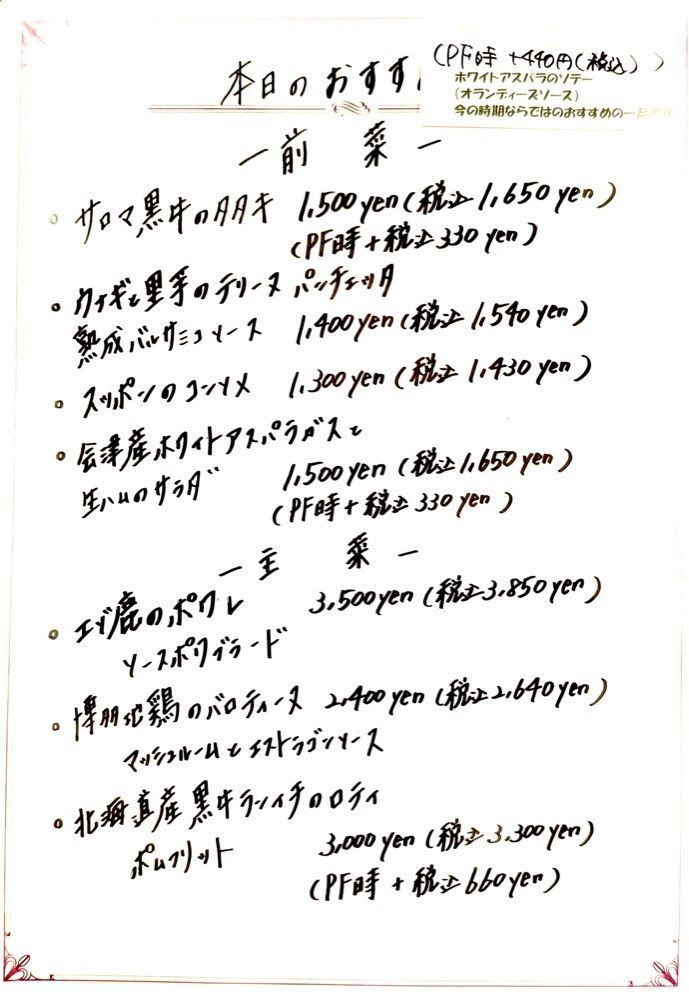 本日のおすす
(PF時 +440円(税込))
ホワイトアスパラのソテー
(オランディーズソース)
今の時期ならではのおすすめの一品です
ー前 菜ー
サロマ黒牛のタタキ 1,500yen(税込1,650yen)
(PF時+税込330yen)
ウナギと里芋のテリーヌ パンチェッタ
熟成バルサミコソース 1,400yen(税込1,540yen)
スッポンのコンソメ 1,300yen(税込1,430yen)
会津産ホワイトアスパラガスと
生ハムのサラダ 1,500yen(税込1,650yen)
(PF時+税込330yen)
ー主 菜ー
エゾ鹿のポワレ 3,500yen(税込3,850yen)
ソースポワブラード
博多地鶏のバロティーヌ 2,400yen(税込2,640yen)
マッシュルームとエストラゴンソース
北海道産黒牛ランイチのロティ
ポムフリット 3,000yen(税込3,300yen)
(PF時+税込660yen)